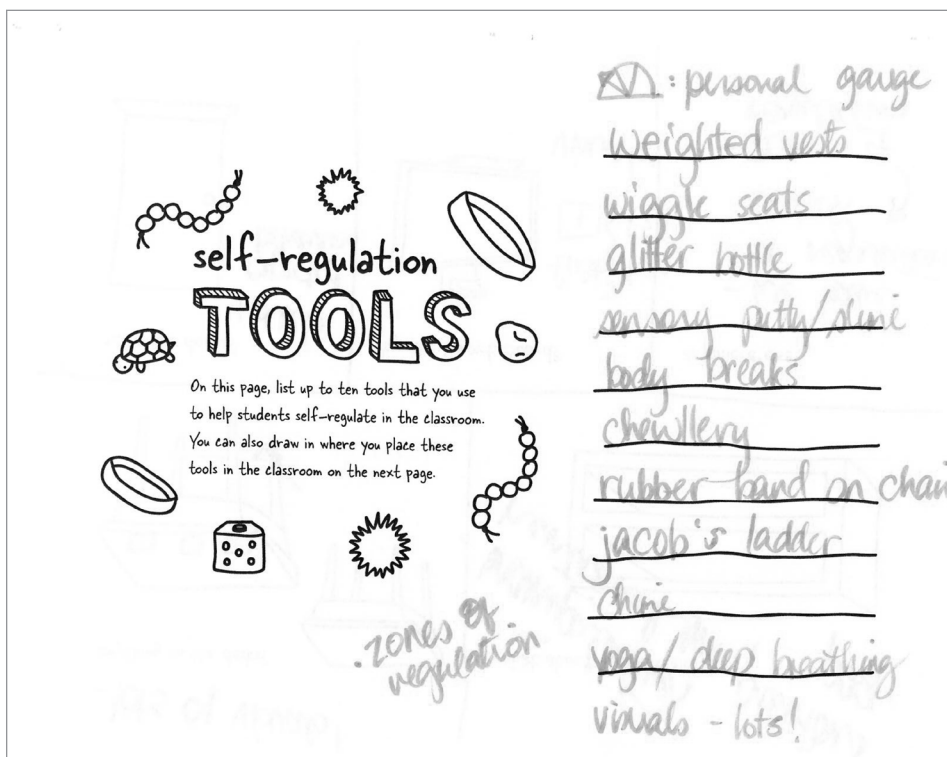 self-regulation
TOOLS
On this page, list up to ten tools that you use
to help students self-regulate in the classroom.
You can also draw in where you place these
tools in the classroom on the next page.
. zones of
regulation
: personal gauge
weighted vests
wiggle seats
glitter bottle
sensory putty/slime
body breaks
chewllery
rubber band on chair
jacob's ladder
chime
yoga/ deep breathing
visuals - lots!